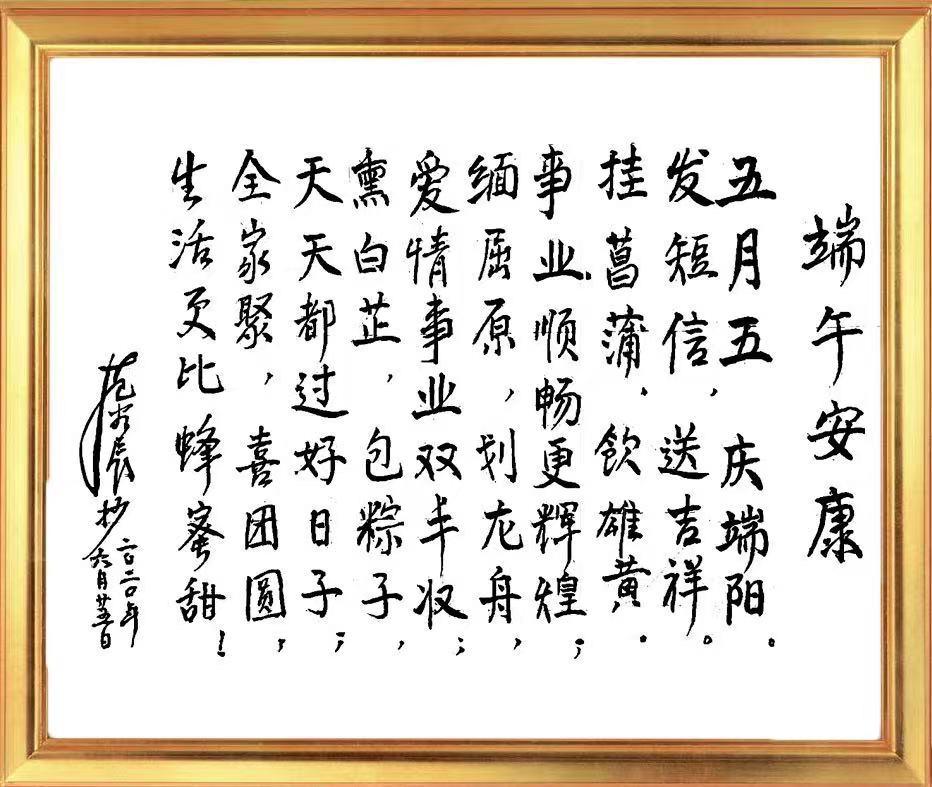 端午安康
五月五，庆端阳。
发短信，送吉祥。
挂菖蒲，飲雄黄。
事业顺畅更辉煌；
缅屈原，划龙舟，
爱情事业双丰收；
熏白芷，包粽子，
天天都过好日子；
全家聚，喜团圆，
生活更比蜂蜜甜！
抄
二〇二〇年
六月廿五日